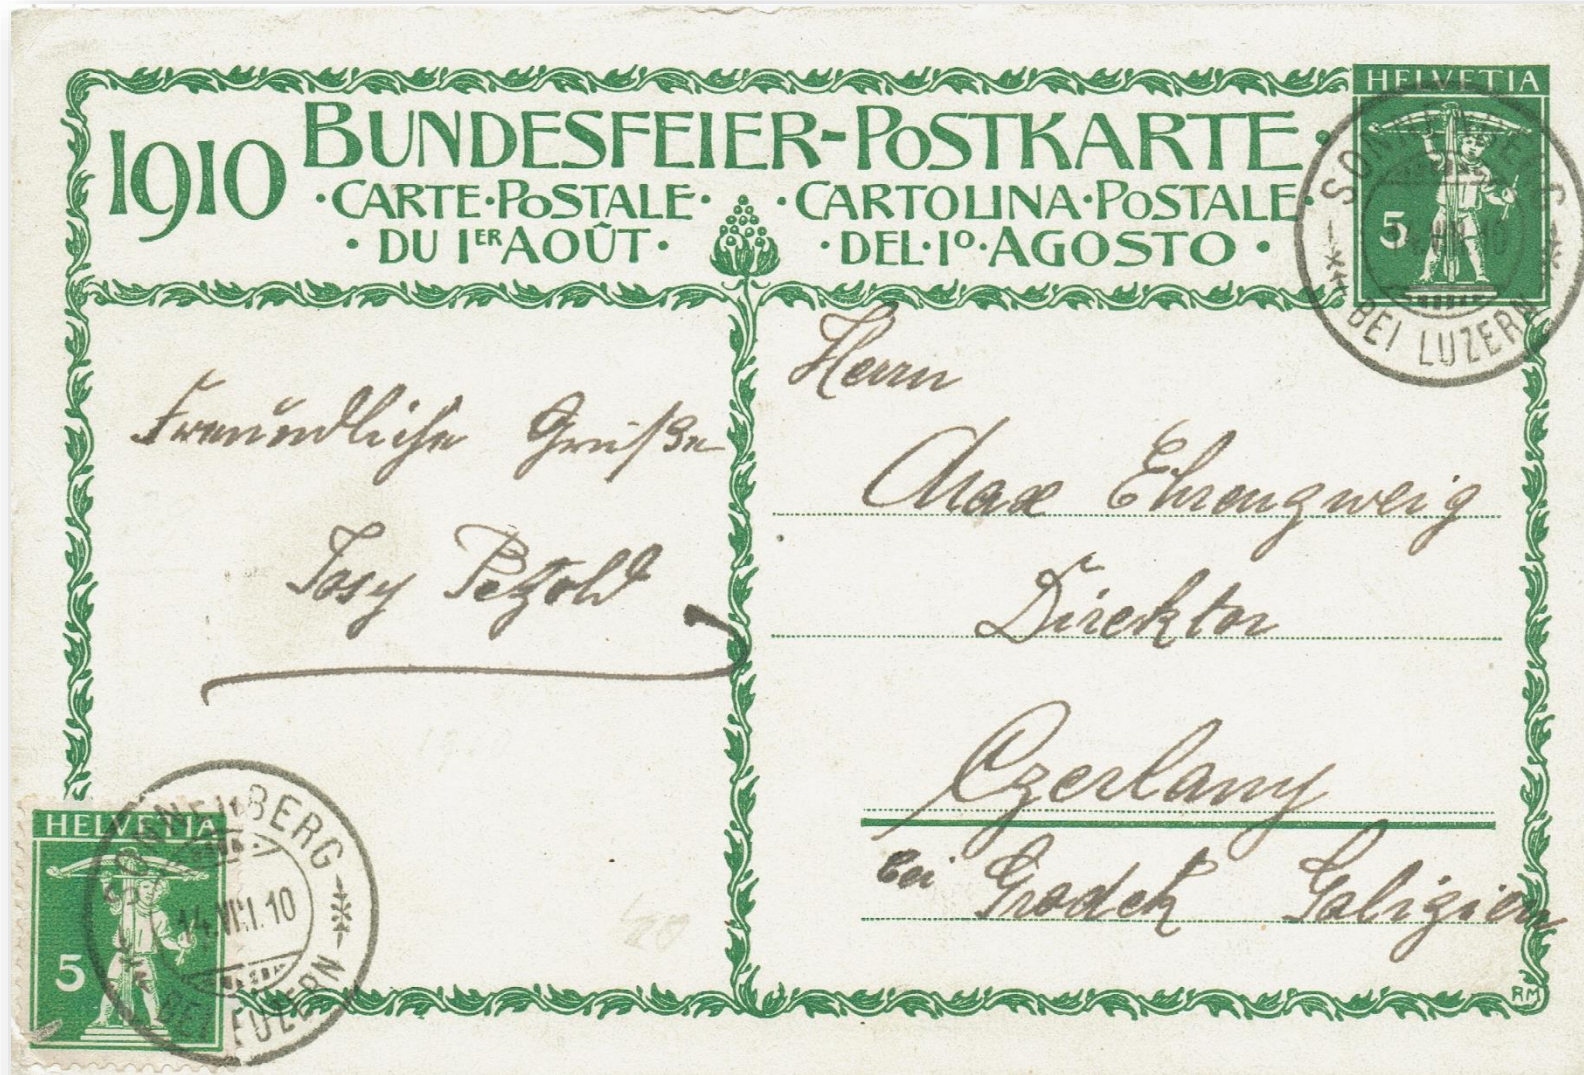 1910 BUNDESFEIER-POSTKARTE
·CARTE·POSTALE· ·CARTOLINA·POSTALE·
·DU 1ER AOÛT· ·DEL·1º·AGOSTO·
HELVETIA
5
SONNENBERG
BEI LUZERN
Freundliche Grüße
Josy Petzold
Herrn
Max Ehrenzweig
Direktor
Czerlany
bei Grodek Galizien
HELVETIA
5
SONNENBERG
14.VIII.10
BEI LUZERN
RM